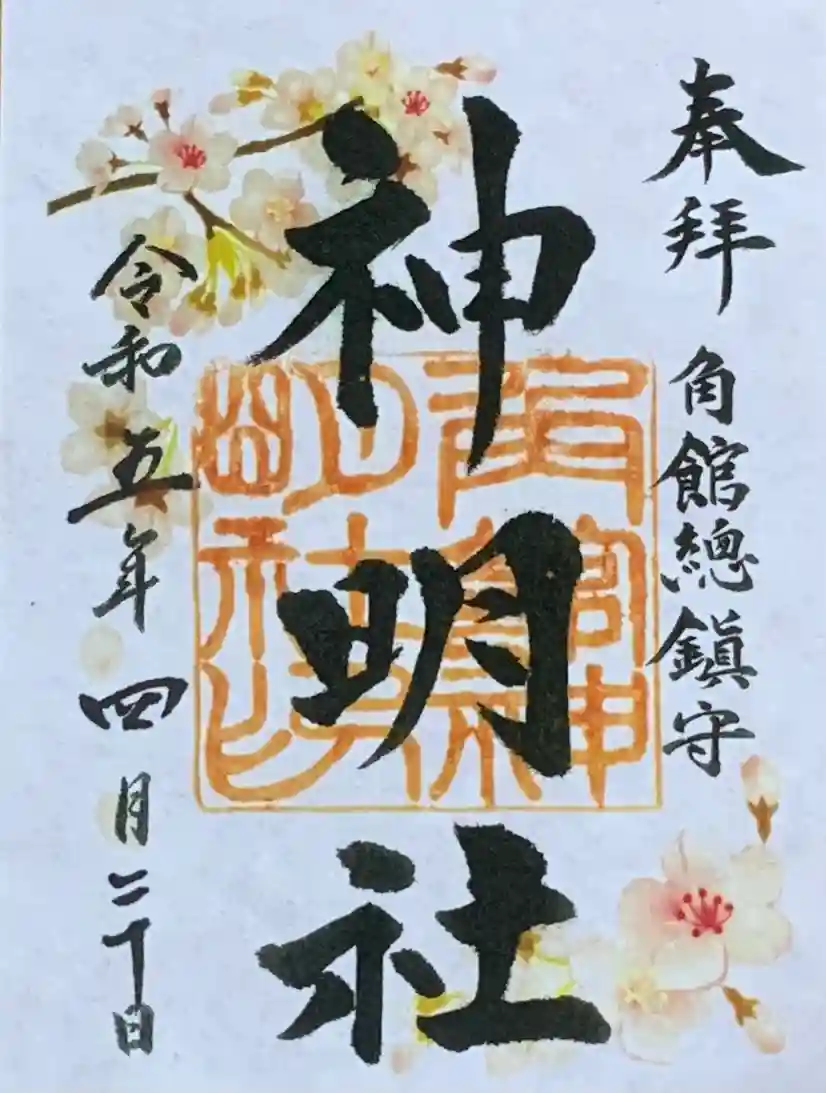 奉拝 角館總鎮守
神明社
令和五年四月二十日